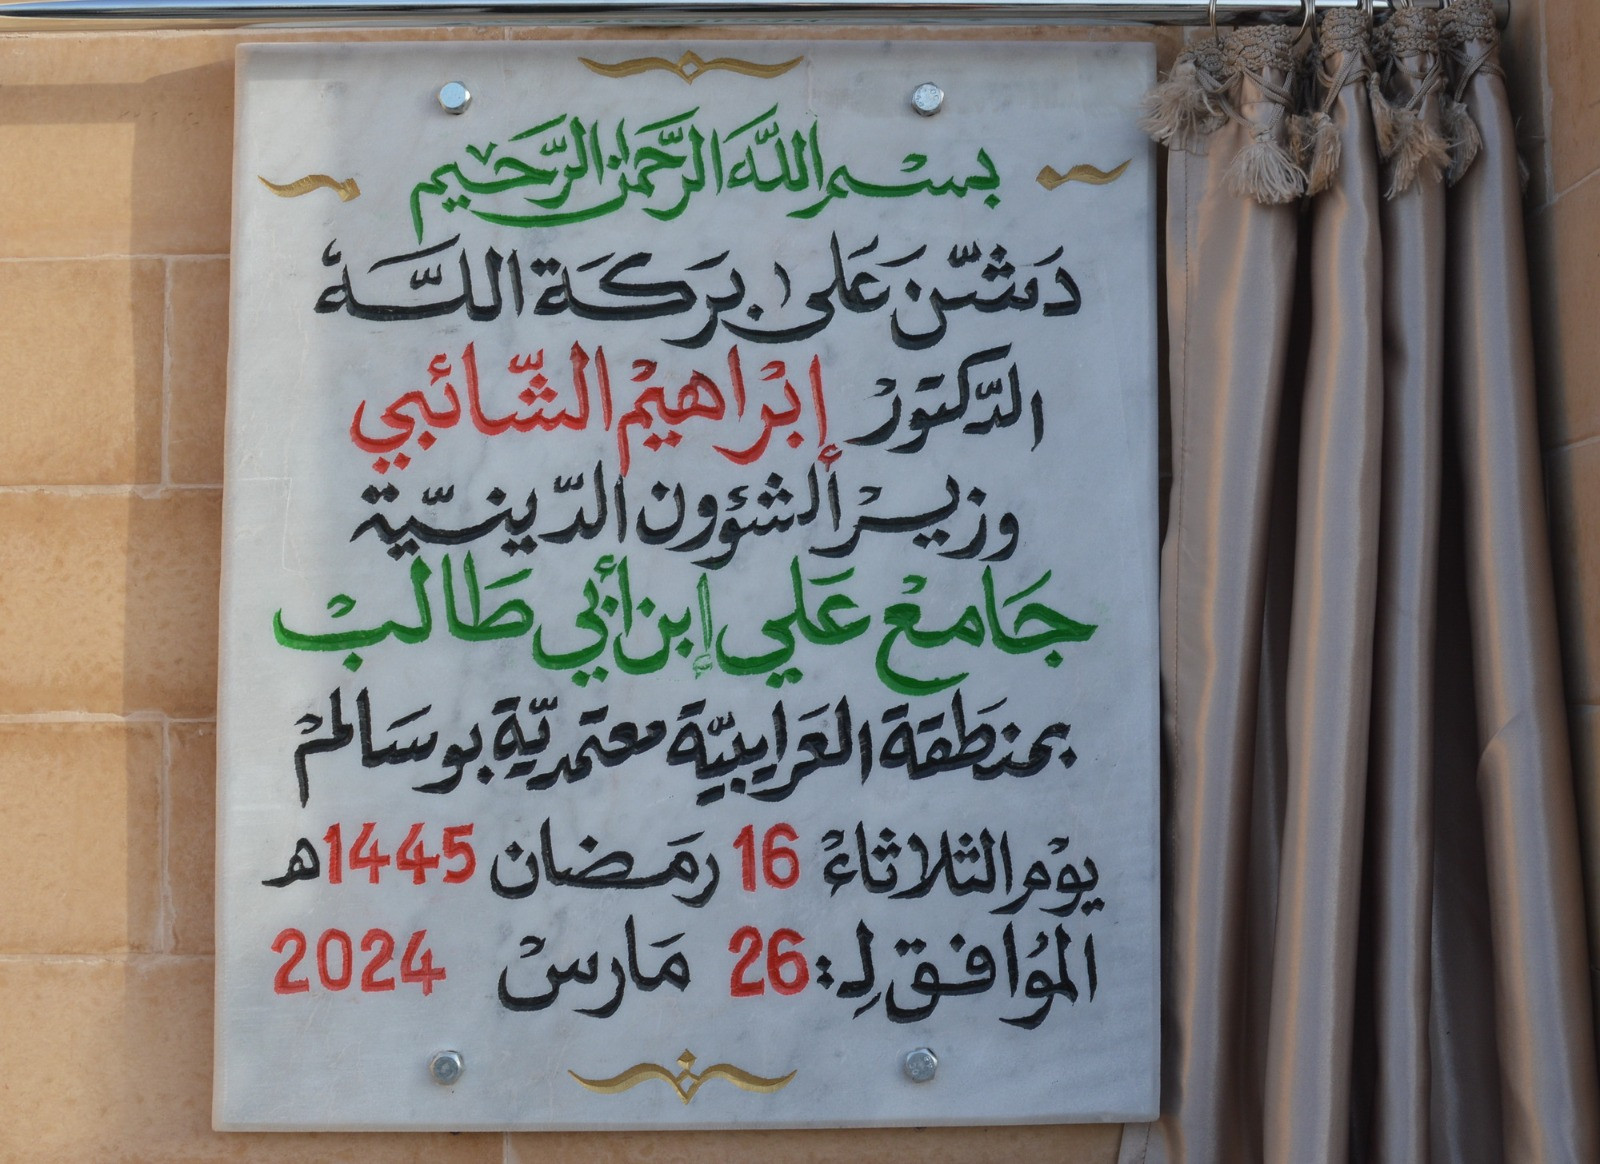 بسْم اللَّه الرَّحمن الرَّحيم
دَشّنَ عَلى بَركَة اللَّه
الدَّكتورْ إبْراهيمْ الشّائبي
وزيرْ الشؤون الدّينيّة
جَامعْ عَلي إبن أبي طَالبْ
بمنطَقة العَرايبيّة معتمديّة بوسَالمْ
يوْم الثلاثاءْ 16 رمَضان 1445هـ
المُوافق لِـ: 26 مَارسْ 2024